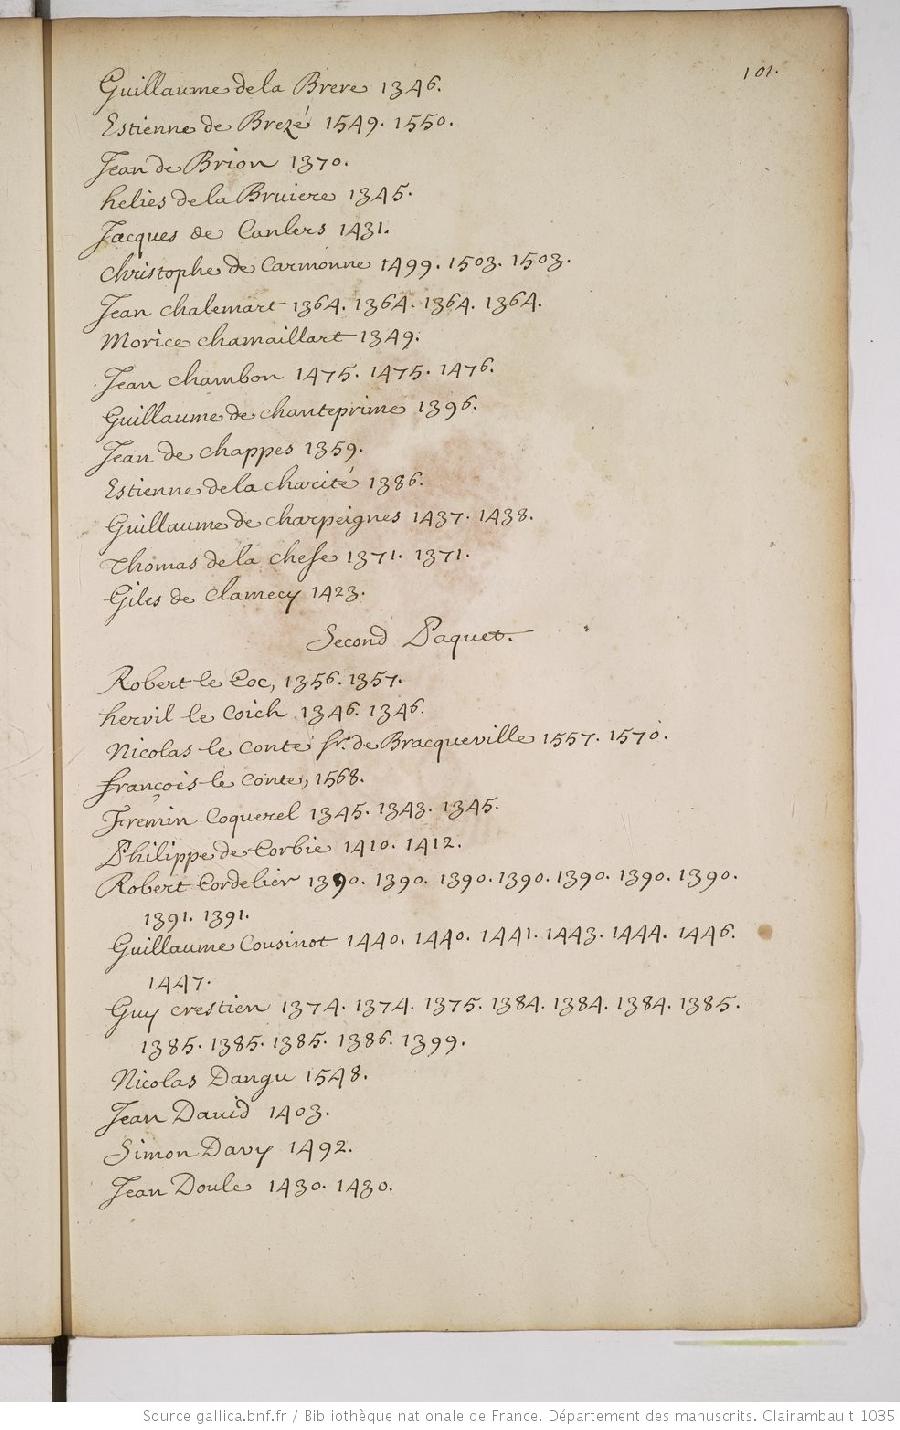 101.
Guillaume de la Brere 1346.
Estienne de Brezé 1549. 1550.
Jean de Brion 1370.
helies de la Bruiere 1345.
Jacques de Canlers 1431.
christophe de Carmonne 1499. 1503. 1503.
Jean chalemart 1364. 1364. 1364. 1364.
Morice chamaillart 1349.
Jean chambon 1475. 1475. 1476.
Guillaume de chanteprime 1396.
Jean de chappes 1359.
Estienne de la charité 1386.
Guillaume de charpeignes 1437. 1438.
Thomas de la chese 1371. 1371.
Giles de Clamecy 1423.
Second Paquet.
Robert le Coc, 1356. 1357.
hervil le Coich 1346. 1346.
Nicolas le Conte sr. de Bracqueville 1557. 1570.
françois le Conte, 1568.
Fremin Coquerel 1345. 1343. 1345.
Philippe de Corbie 1410. 1412.
Robert Cordelier 1390. 1390. 1390. 1390. 1390. 1390. 1390.
1391. 1391.
Guillaume Cousinot 1440. 1440. 1441. 1443. 1444. 1446.
1447.
Guy crestien 1374. 1374. 1375. 1384. 1384. 1384. 1385.
1385. 1385. 1385. 1386. 1399.
Nicolas Dangu 1548.
Jean David 1403.
Simon Davy 1492.
Jean Doule 1430. 1430.
Source gallica.bnf.fr / Bibliothèque nationale de France. Département des manuscrits. Clairambault 1035